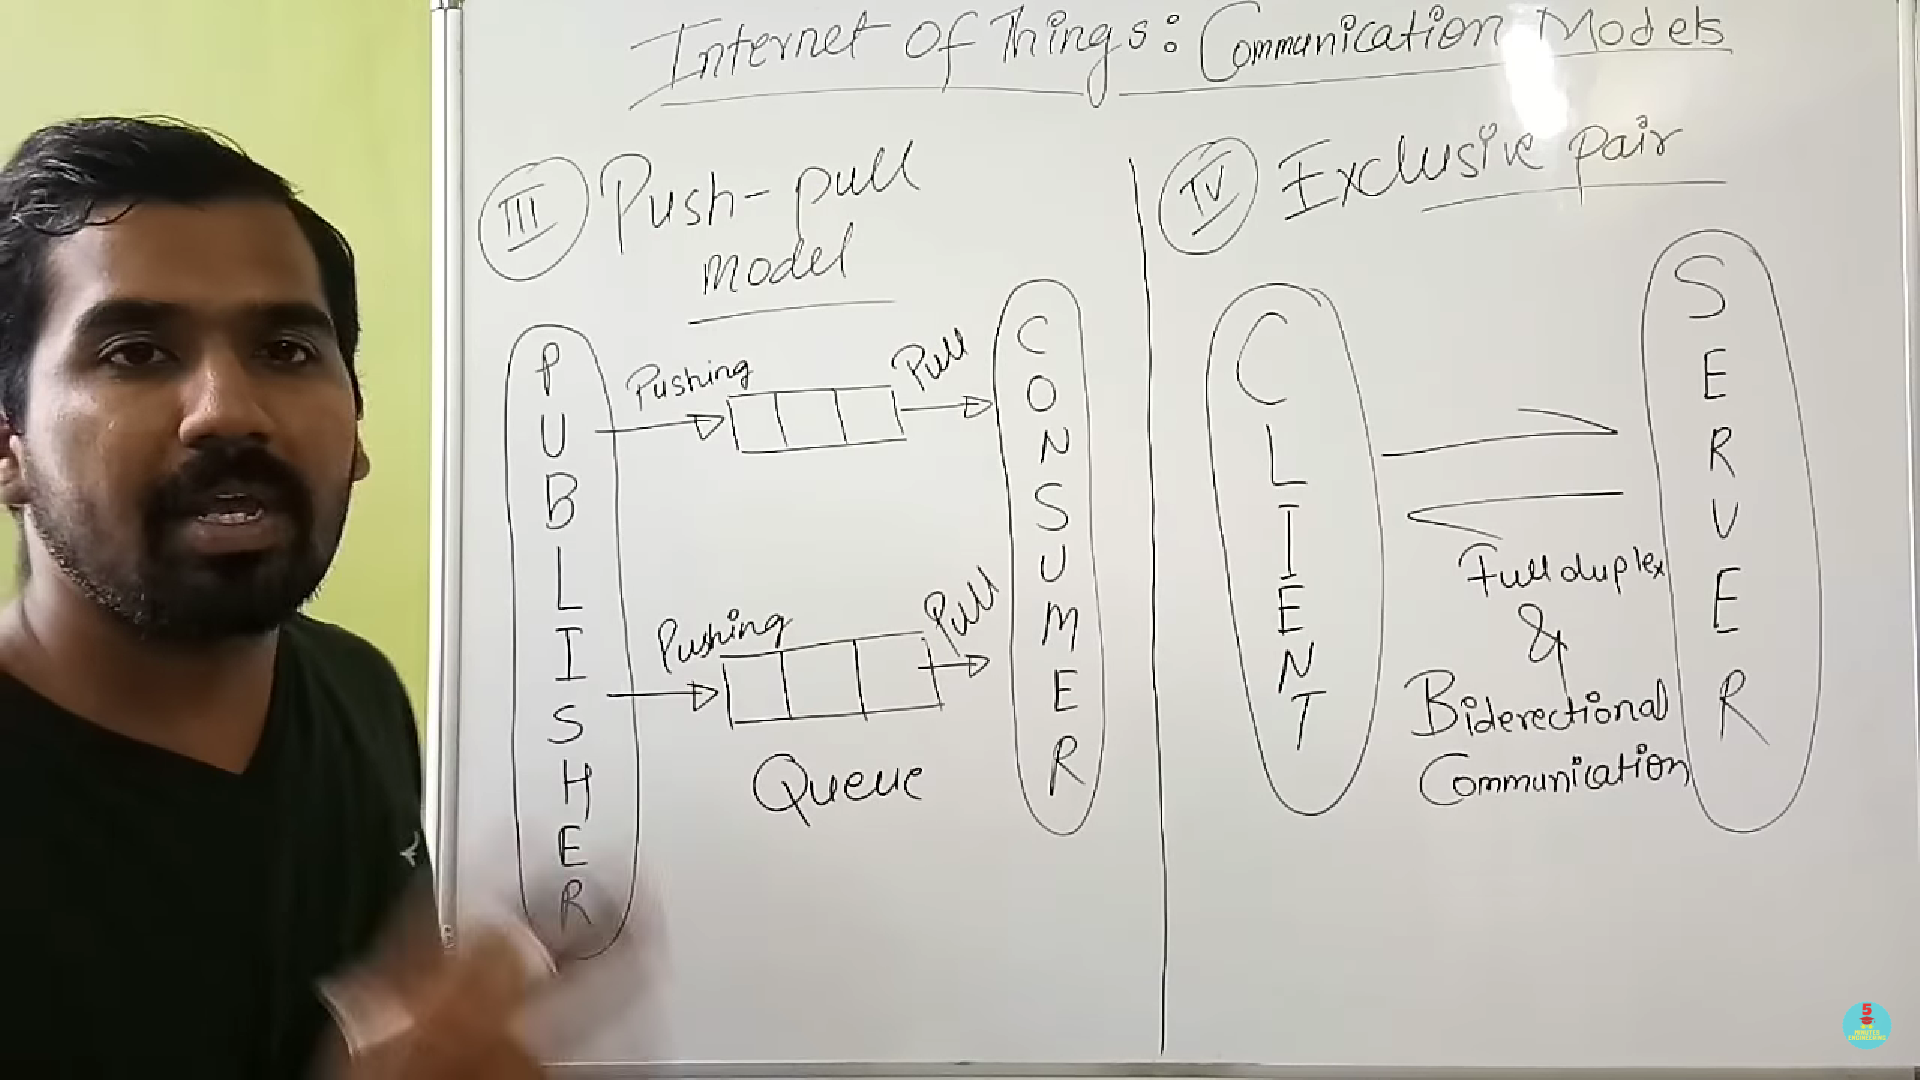 Internet Of Things: Communication Models
III Push-pull
model
PUBLISHER
Pushing
Pull
Pushing
Pull
Queue
CONSUMER
IV Exclusive pair
CLIENT
Full duplex
&
Biderectional
Communication
SERVER
5
MINUTES
ENGINEERING